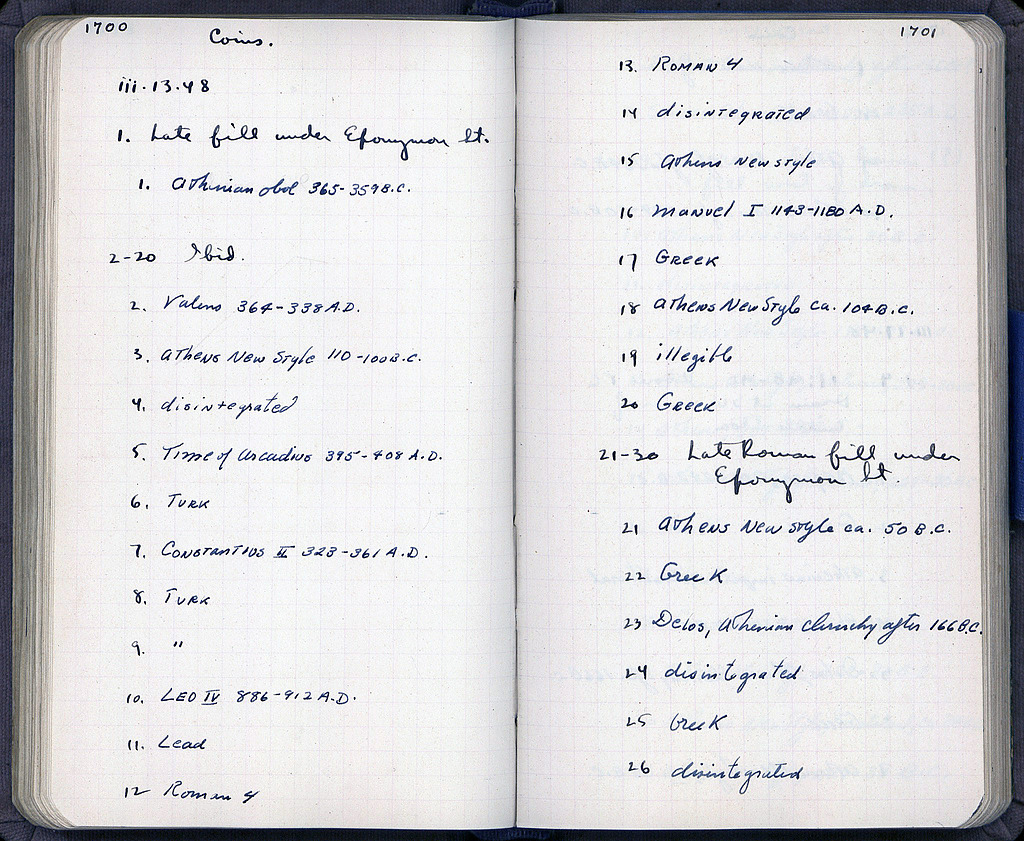 1700
Coins.
iii.13.48
1. Late fill under Eponymon St.
1. Athenian obol 365-359 B.C.
2-20 Ibid.
2. Valens 364-338 A.D.
3. Athens New Style 110-100 B.C.
4. disintegrated
5. Time of Arcadius 395-408 A.D.
6. Turk
7. Constantius II 323-361 A.D.
8. Turk
9. "
10. LEO IV 886-912 A.D.
11. Lead
12 Roman 4
1701
13. Roman 4
14 disintegrated
15 Athens New style
16 Manuel I 1143-1180 A.D.
17 Greek
18 Athens New Style ca. 104 B.C.
19 illegible
20 Greek
21-30 Late Roman fill under
Eponymon St.
21 Athens New style ca. 50 B.C.
22 Greek
23 Delos, Athenian cleruchy after 166 B.C.
24 disintegrated
25 Greek
26 disintegrated